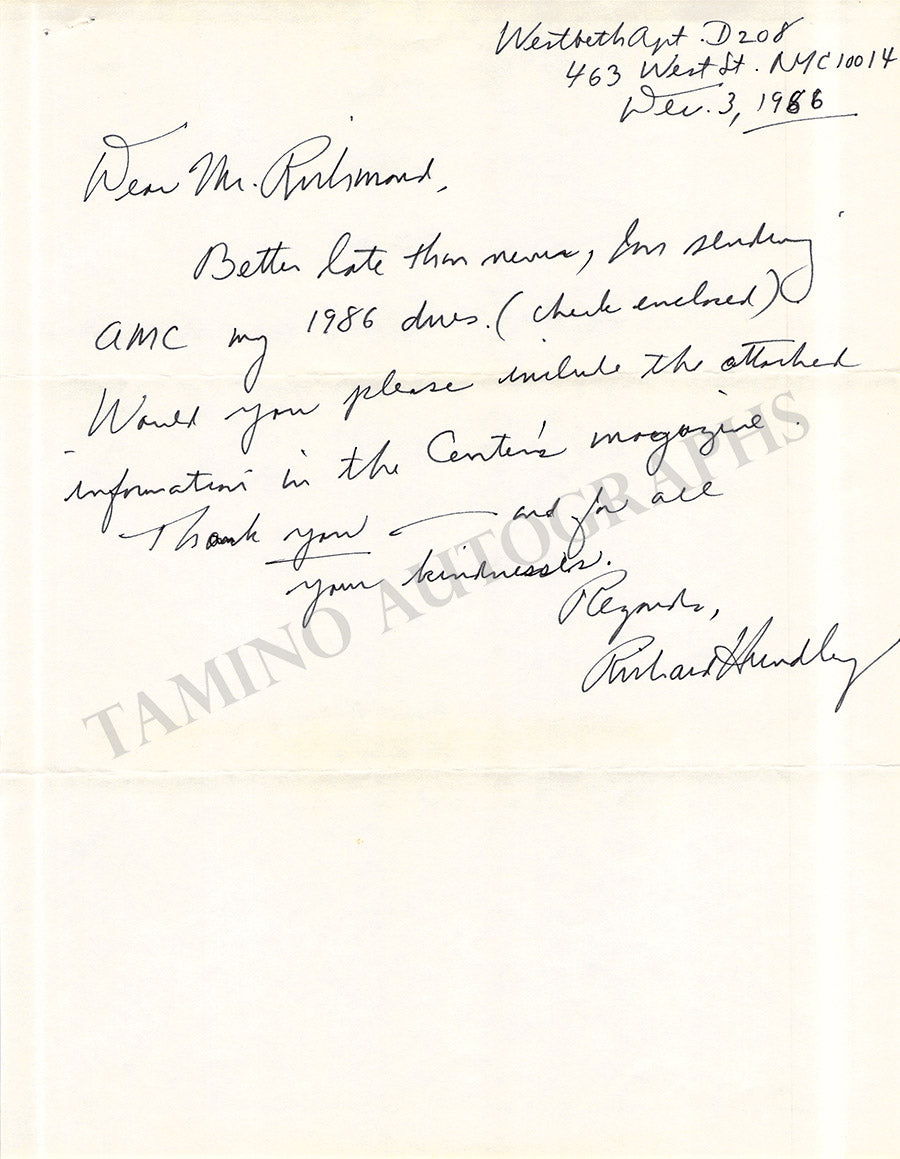 Westbeth Apt. D208
463 West St. NYC 10014
Dec. 3, 1986
Dear Mr. Richmond,
Better late than never, I'm sending
AMC my 1986 dues. (check enclosed)
Would you please include the attached
information in the Center's magazine.
Thank you — and for all
your kindnesses.
Regards,
Richard Hundley
TAMINO AUTOGRAPHS